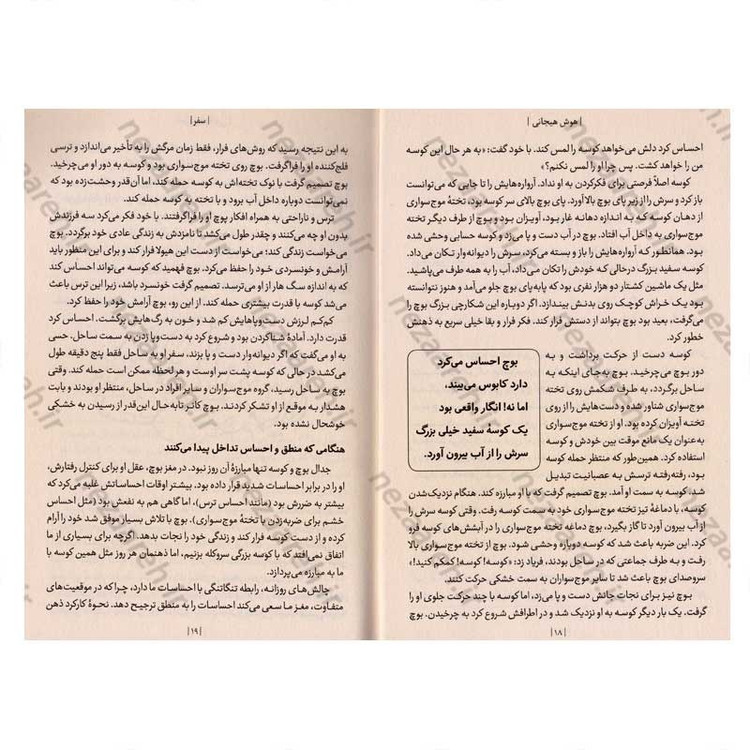 | هوش هیجانی |
احساس کرد دلش می‌خواهد کوسه را لمس کند. با خود گفت: «به هر حال این کوسه
من را خواهد کشت. پس چرا او را لمس نکنم؟»
کوسه اصلاً فرصتی برای فکرکردن به او نداد. آرواره‌هایش را تا جایی که می‌توانست
باز کرد و سرش را از زیر پای بوچ بالا آورد. پای بوچ بالای سر کوسه بود، تختهٔ موج‌سواری
از دهان کوسه که به اندازه دهانه غار بود، آویزان بود و بوچ از طرف دیگر تخته
موج‌سواری به داخل آب افتاد. بوچ در آب دست و پا می‌زد و کوسه حسابی وحشی شده
بود. همانطور که آرواره‌هایش را باز و بسته می‌کرد، سرش را دیوانه‌وار تکان می‌داد.
کوسه سفید بزرگ درحالی که خودش را تکان می‌داد، آب را به همه طرف می‌پاشید.
مثل یک ماشین کشتار دو هزار نفری بود که پابه‌پای بوچ جلو می‌آمد و هنوز نتوانسته
بود یک خراش کوچک روی بدنش بیندازد. اگر دوباره این شکارچی بزرگ بوچ را
می‌گرفت، بعید بود بوچ بتواند از دستش فرار کند. فکر فرار و بقا خیلی سریع به ذهنش
خطور کرد.
کوسه دست از حرکت برداشت و به
دور بوچ می‌چرخید. بوچ به‌جای اینکه به
ساحل برگردد، به طرف شکمش روی تخته
موج‌سواری شناور شده و دست‌هایش را از روی
تخته آویزان کرده بود. او از تخته موج‌سواری
به‌عنوان یک مانع موقت بین خودش و کوسه
استفاده کرد. همین‌طور که منتظر حمله کوسه
بود، رفته‌رفته ترسش به عصبانیت تبدیل
بوچ احساس می‌کرد
دارد کابوس می‌بیند،
اما نه! انگار واقعی بود
یک کوسه سفید خیلی بزرگ
سرش را از آب بیرون آورد.
شد. کوسه به سمت او آمد. بوچ تصمیم گرفت که با او مبارزه کند. هنگام نزدیک‌شدن
کوسه، با دماغهٔ تیز تخته موج‌سواری خود به سمت کوسه رفت. وقتی کوسه سرش را
از آب بیرون آورد تا گاز بگیرد، بوچ دماغه تخته موج‌سواری را در آبشش‌های کوسه فرو
کرد. این ضربه باعث شد که کوسه دوباره وحشی شود. بوچ از تخته موج‌سواری بالا
رفت و به طرف جماعتی که در ساحل بودند، فریاد زد: «کوسه! کوسه! کمکم کنید!»،
سروصدای بوچ باعث شد تا سایر موج‌سواران به سمت خشکی حرکت کنند.
بوچ نیز برای نجات جانش دست و پا می‌زد، اما کوسه با چند حرکت جلوی او را
گرفت. یک بار دیگر کوسه به او نزدیک شد و در اطرافش شروع کرد به چرخیدن. بوچ
| ۱۸ |
| سفر |
به این نتیجه رسید که روش‌های فرار، فقط زمان مرگش را به تأخیر می‌اندازد و ترسی
فلج‌کننده او را فراگرفت. بوچ روی تخته موج‌سواری بود و کوسه به دور او می‌چرخید.
بوچ تصمیم گرفت با نوک تخته‌اش به کوسه حمله کند، اما آن‌قدر وحشت‌زده بود که
نمی‌توانست دوباره داخل آب برود و با تخته به کوسه حمله کند.
ترس و ناراحتی به همراه افکار بوچ او را فراگرفتند. با خود فکر می‌کرد سه فرزندش
بدون او چه می‌کنند و چقدر طول می‌کشد تا نامزدش به زندگی عادی خود برگردد. بوچ
می‌خواست زندگی کند؛ می‌خواست از دست این هیولا فرار کند و برای این منظور باید
آرامش و خونسردی خود را حفظ می‌کرد. بوچ فهمید که کوسه می‌تواند احساس کند
که به اندازه سگ هار از او می‌ترسد. تصمیم گرفت خونسرد باشد، زیرا این ترس باعث
می‌شد کوسه با قدرت بیشتری حمله کند. از این رو، بوچ آرامش خود را حفظ کرد.
کم‌کم لرزش دست‌وپاهایش کم شد و خون به رگ‌هایش برگشت. احساس کرد
قدرت دارد. آمادهٔ شناکردن بود و شروع کرد به دست‌وپا زدن به سمت ساحل. حسی
به او می‌گفت که اگر دیوانه‌وار دست و پا بزند، سفر او به ساحل فقط پنج دقیقه طول
می‌کشد در حالی که کوسه پشت سر اوست و هر لحظه ممکن است حمله کند. وقتی
بوچ به ساحل رسید، گروه موج‌سواران و سایر افراد در ساحل، منتظر او بودند و بابت
هشدار به موقع از او تشکر کردند. بوچ کانر تا به حال این‌قدر از رسیدن به خشکی
خوشحال نشده بود.
هنگامی که منطق و احساس تداخل پیدا می‌کنند
جدال بوچ و کوسه تنها مبارزهٔ آن روز نبود. در مغز بوچ، عقل او برای کنترل رفتارش،
او را در برابر احساسات شدید قرار داده بود. بیشتر اوقات احساساتش غلبه می‌کرد که
بیشتر به ضررش بود (مانند احساس ترس)، اما گاهی هم به نفعش بود (مثل احساس
خشم برای ضربه‌زدن با تختهٔ موج‌سواری). بوچ با تلاش بسیار موفق شد خود را آرام
کرده و از دست کوسه فرار کند و زندگی خود را نجات بدهد. اگرچه برای بسیاری از ما
اتفاق نمی‌افتد که با کوسه بزرگی سروکله بزنیم، اما ذهنمان هر روز مثل همین کوسه با
ما به مبارزه می‌پردازد.
چالش‌های روزانه، رابطه تنگاتنگی با احساسات ما دارد، چرا که در موقعیت‌های
متفاوت، مغز ما سعی می‌کند احساسات را به منطق ترجیح دهد. نحوهٔ کارکرد ذهن
| ۱۹ |
nezaareh.ir